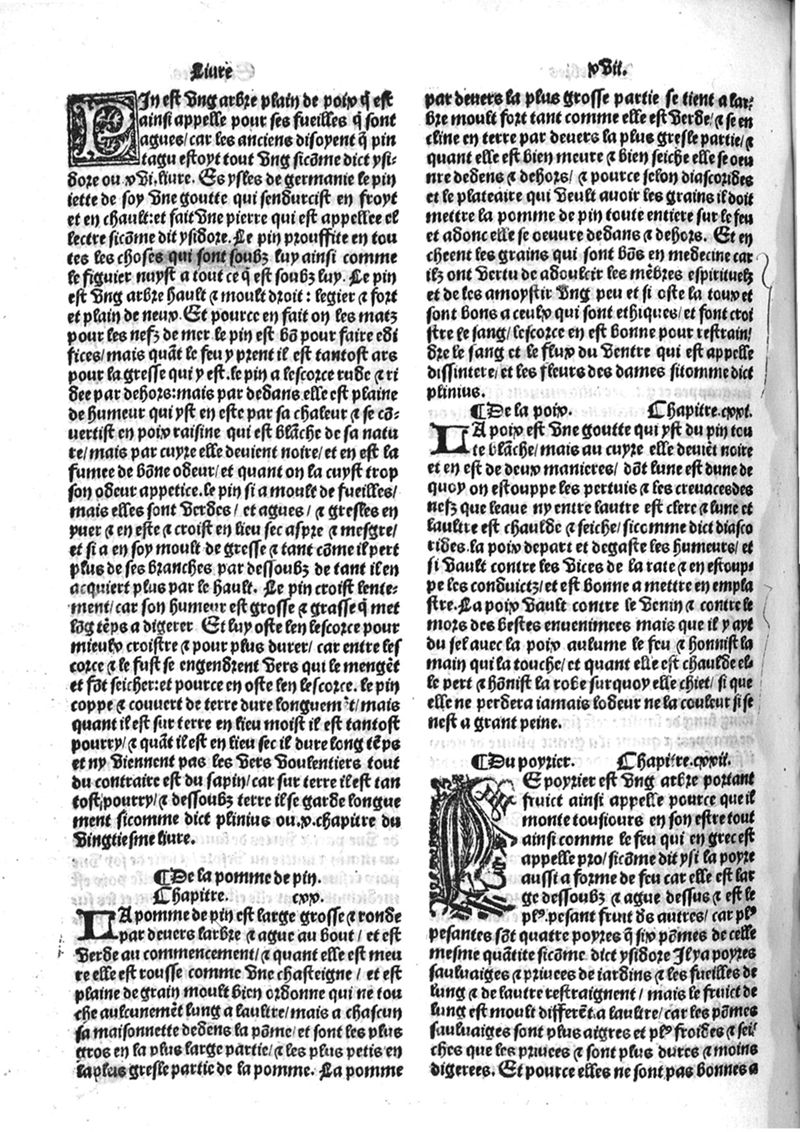 Liure
xvii.
PIn est vng arbre plain de poix q̃ est
ainsi appelle pour ses fueilles q̃ sont
agues/ car les anciens disoyent q̃ pin
tagu estoyt tout vng sicõme dict ysi-
dore ou xvi. liure. Es ysles de germanie le pin
iette de soy vne goutte qui sendurcist en froyt
et en chault: et fait vne pierre qui est appellee el
lectre sicõme dit ysidore. Le pin prouffite en tou
tes les choses qui sont soubz luy ainsi comme
le figuier nuyst a tout ce q̃ est soubz luy. Le pin
est vng arbre hault & moult droit: legier & fort
et plain de neux. Et pource en fait on les matz
pour les nefz de mer. le pin est bõ pour faire edi
fices/ mais quãt le feu y prent il est tantost ars
pour la gresse qui y est. le pin a lescorce rude & ri
dee par dehors: mais par dedans elle est plaine
de humeur qui yst en este par sa chaleur & se cõ-
vertist en poix raisine qui est blãche de sa natu
re/ mais par cuyre elle devient noire/ et en est la
fumee de bõne odeur/ et quant on la cuyst trop
son odeur appetice. le pin si a moult de fueilles/
mais elles sont verdes/ et agues/ & gresles en
yuer & en este & croist en lieu sec aspre & mesgre/
et si a en soy moult de gresse & tant cõme il pert
plus de ses branches par dessoubz de tant il en
acquiert plus par le hault. Le pin croist lente-
ment/ car son humeur est grosse & grasse q̃ met
lõg tẽps a digerer. Et luy oste len lescorce pour
mieulx croistre & pour plus durer/ car entre les
corce & le fust se engendrent vers qui le mengẽt
et fõt seicher: et pource en oste len lescorce. le pin
coppe & couvert de terre dure longuem̃t/ mais
quant il est sur terre en lieu moist il est tantost
pourry/ & quãt il est en lieu sec il dure long tẽps
et ny viennent pas les vers voulentiers tout
du contraire est du sapin/ car sur terre il est tan
tost/ pourry/ & dessoubz terre il se garde longue
ment sicomme dict plinius ou. x. chapitre du
vingtiesme liure.
¶De la pomme de pin.
Chapitre. cxx.
LA pomme de pin est large grosse & ronde
par devers larbre & ague au bout/ et est
verde au commencement/ & quant elle est meu
re elle est rousse comme vne chasteigne/ et est
plaine de grain moult bien ordonne qui ne tou
che aulcunemẽt lung a laultre/ mais a chascun
sa maisonnette dedens la põme/ et sont les plus
gros en la plus large partie/ & les plus petis en
la plus gresle partie de la pomme. La pomme
par devers la plus grosse partie se tient a lar-
bre moult fort tant comme elle est verde/ & se en
cline en terre par devers la plus gresle partie/ &
quant elle est bien meure & bien seiche elle se oeu
vre dedens & dehors/ & pource selon diascorides
et le plateaire qui veult avoir les grains il doit
mettre la pomme de pin toute entiere sur le feu
et adonc elle se oeuvre dedãs & dehors. Et en
cheent les grains qui sont bõs en medecine car
ilz ont vertu de adoulcir les mẽbres espirituelz
et de les amoystir vng peu et si oste la toux et
sont bons a ceulx qui sont ethiques/ et font croi
stre le sang/ lescorce en est bonne pour restrain/
dre le sang et le flux du ventre qui est appelle
dissintere/ et les fleurs des dames sicomme dict
plinius.
¶De la poix. Chapitre. cxxi.
LA poix est vne goutte qui yst du pin tou
te blãche/ mais au cuyre elle deviẽt noire
et en est de deux manieres/ dõt lune est dune de
quoy on estouppe les pertuis & les crevaces des
nefz que leaue ny entre lautre est clere & lune et
laultre est chaulde & seiche/ sicomme dict diasco
rides. la poix depart et degaste les humeurs/ et
si vault contre les vices de la rate & en estoup/
pe les conduictz/ et est bonne a mettre en empla
stre. La poix vault contre le venin/ & contre le
mors des bestes envenimees mais que il y ayt
du sel avec la poix alume le feu & honnist la
main qui la touche/ et quant elle est chaulde el-
le pert & hõnist la robe sur quoy elle chiet/ si que
elle ne perdera iamais lodeur ne la couleur si se
nest a grant peine.
¶Du poyrier. Chapitre. cxxii.
LE poyrier est vng arbre portant
fruict ainsi appelle pource que il
monte tousiours en son estre tout
ainsi comme le feu qui en grec est
appelle pro/ sicõme dit ysi la poyre
aussi a forme de feu car elle est lar
ge dessoubz & ague dessus & est le
plꝰ. pesant fruit des autres/ car plꝰ
pesantes sõt quatre poyres q̃ six põmes de celle
mesme quãtite sicõme dict ysidore Il y a poyres
sauluaiges & privees de iardins & les fueilles de
lung & de lautre restraignent/ mais le fruict de
lung est moult differẽt. a laultre/ car les põmes
sauluaiges sont plus aigres et plꝰ froides & sei/
ches que les privees & sont plus dures & moins
digerees. Et pource elles ne sont pas bonnes a